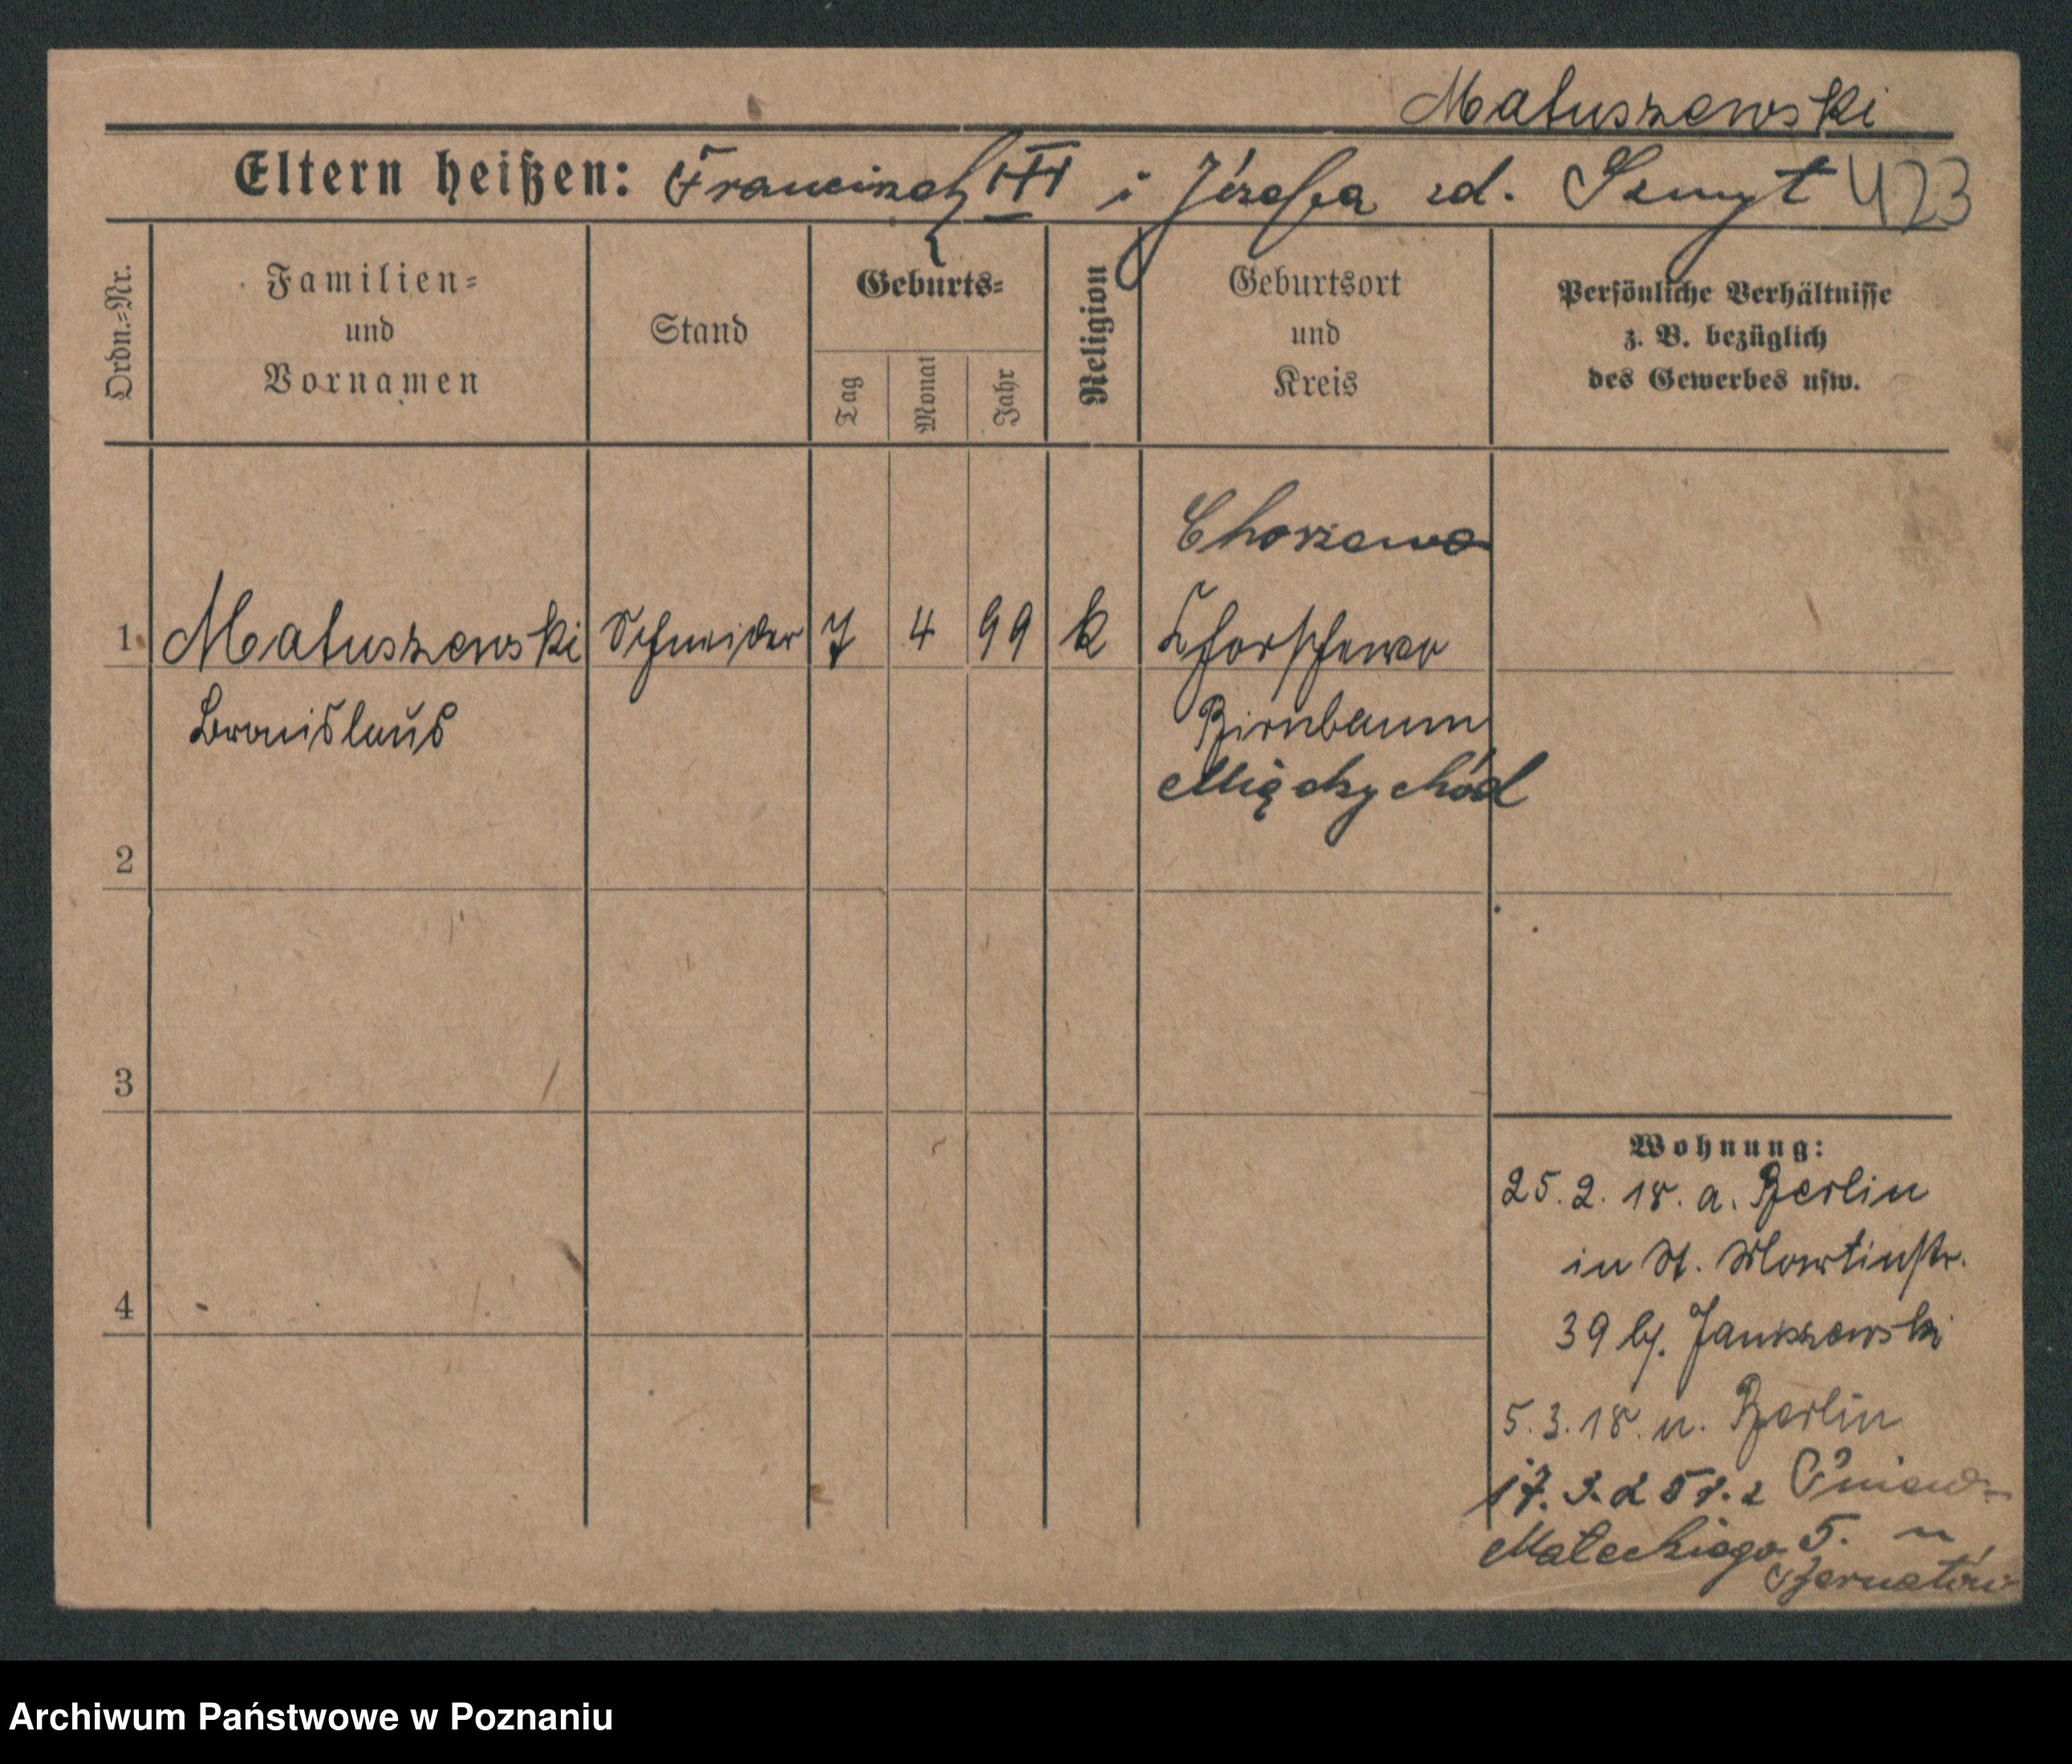 Matuszewski
Eltern heißen: Franciszek i Józefa zd. Szmyt 423
Ordn.-Nr.
Familien-
und
Vornamen
Stand
Geburts-
Tag
Monat
Jahr
Religion
Geburtsort
und
Kreis
Persönliche Verhältnisse
z. B. bezüglich
des Gewerbes usw.
Chorzewo
1 Matuszewski Schneider 7 4 99 k Chorschewo
Bronislaus Birnbaum
Międzychód
2
3
4
Wohnung:
25. 2. 18. a. Berlin
in St. Martinstr.
39 bj. Januszewski
5. 3. 18. n. Berlin
17. 3. z Pniew
Małeckiego 5.
Archiwum Państwowe w Poznaniu